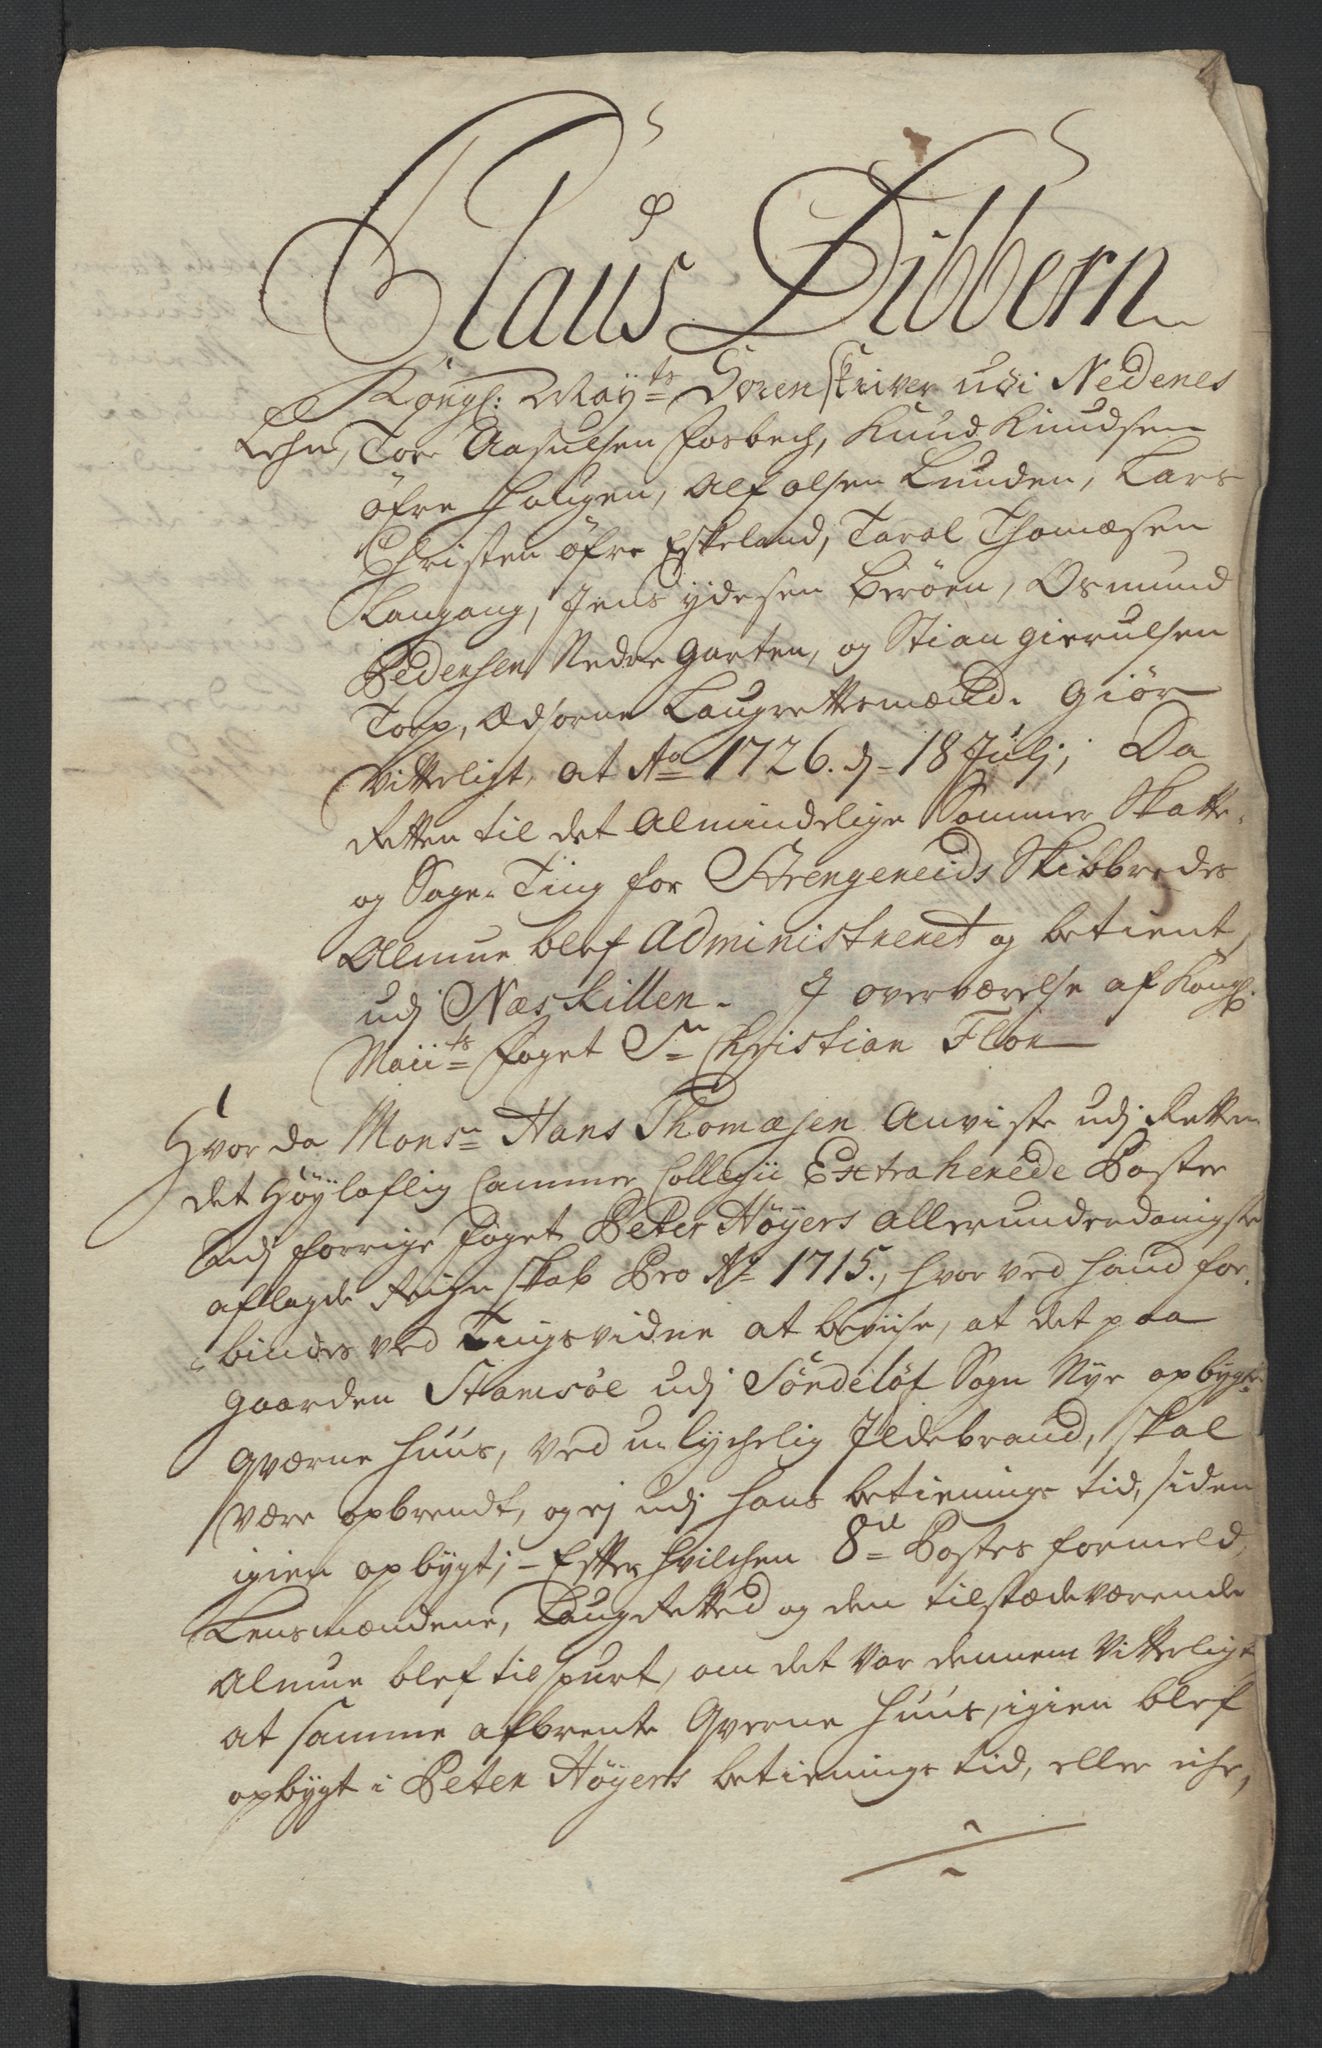 Claus Dibbern
Kongl: Mayts Sorenskriver udi Nedenes
Lehn, Tore Aasulsen Fosbech, Knud Knudsen
öfre Haugen, Alf Olsen Lunden, Lars
Christen öfre Eskeland, Tarol Thomæsen
Langang, Jens ydesen Beröen, Osmund
Pedersen Nedre Garten, og Stian gierulsen
Torp, Edsorne Laugrettsmænd. Giör
Vitterligt, at Ao 1726. d. 18 Julj; Da
Retten til det Almindelige Sommer Skatte-
og Sage-Ting for Strengereids Skibbredes
Almue blef Administreret og betient
udj Næskillen. I overværelse af Kongl.
Maiits Foget Sr Christian Flor
Hvor da Monsr Hans Thomæsen Anviste udj Retten
det Höyloflig Cammer Collegii Extraherede Poster
Udj forrige Foget Peter Höyers allerunderdanigste
aflagde Reigenskab Pro Ao 1715., hvor ved hand for-
bindes ved Tingsvidne at beviise, at det paa
gaarden Stamsöe udj Söndelöf Sogn Nye opbygte
Qværne Huus, ved u-lychelig Ildebrand, skal
være opbrendt, og ej udj hans betienings tid, siden
igien opbygt; - Efter hvilchen 8de Postes formeld,
Lensmændene, LaugRetted og den tilstædeværende
Almue blef tilspurt, om det var dennem Vitterligt
at samme afbrente Qverne Huus, igien blef
opbygt i Peter Höyers betienings tid, eller iche,